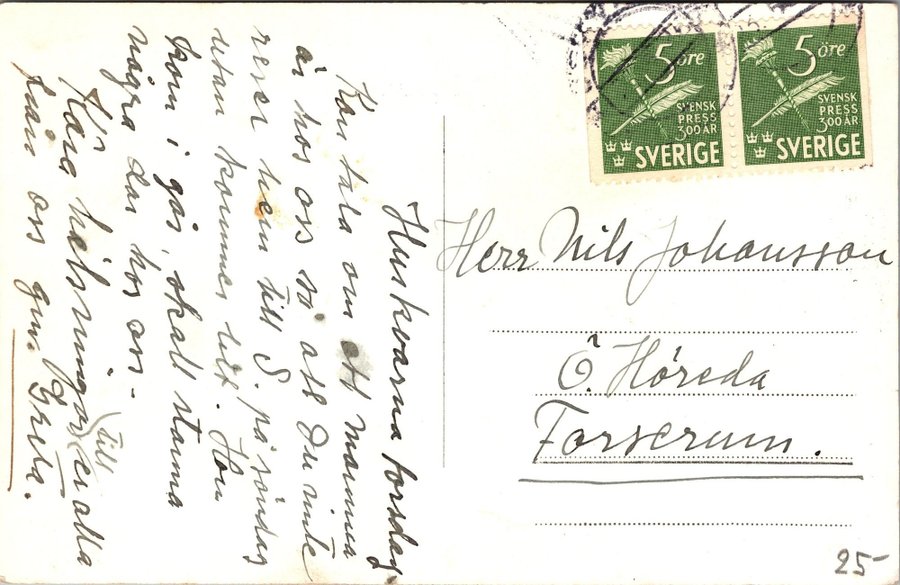 Huskvarna torsdag.
Kan tala om att mamma
är hos oss så att Du inte
reser hem till S. på söndag
utan kommer hit. Hon
kom i går, skall stanna
några dar hos oss-
Kära hälsningar till er alla
från oss gm. Greta.
5 öre
SVENSK
PRESS
300 ÅR
SVERIGE
5 öre
SVENSK
PRESS
300 ÅR
SVERIGE
Herr Nils Johansson
Ö. Höreda
Forserum.
25-